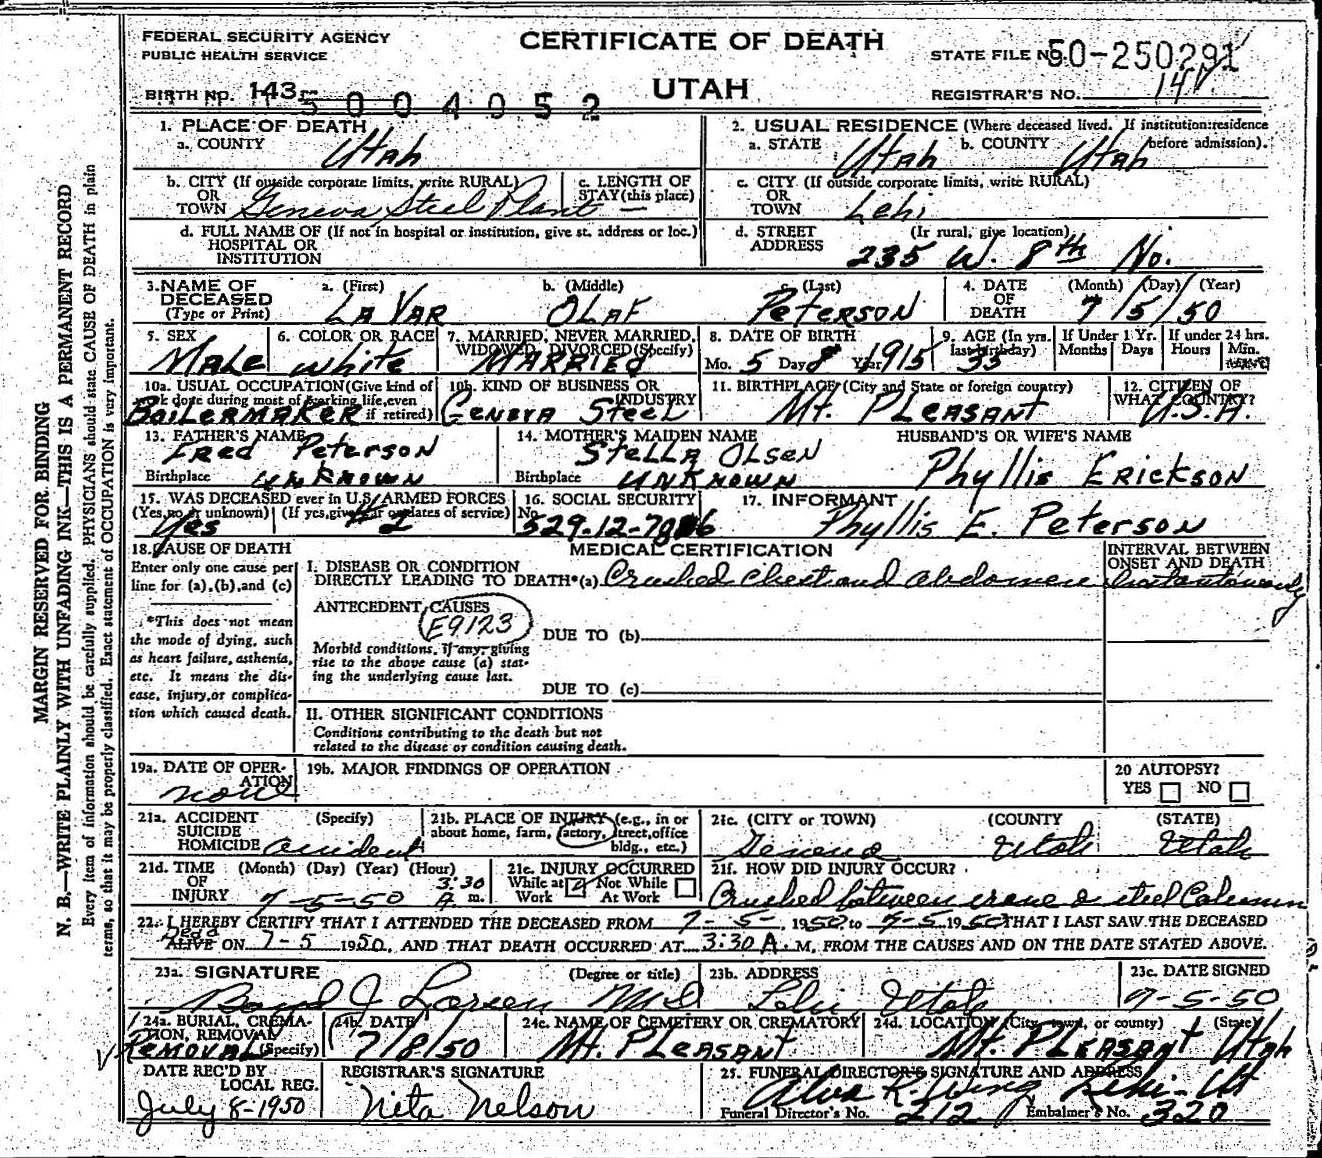 FEDERAL SECURITY AGENCY
PUBLIC HEALTH SERVICE
CERTIFICATE OF DEATH
UTAH
STATE FILE NO. 50-250291
REGISTRAR'S NO. 14
BIRTH NO. 143
5004052
1. PLACE OF DEATH
a. COUNTY Utah
2. USUAL RESIDENCE (Where deceased lived. If institution:residence before admission).
a. STATE Utah b. COUNTY Utah
b. CITY (If outside corporate limits, write RURAL) OR TOWN Geneva Steel Plant
c. LENGTH OF STAY (this place) —
c. CITY (If outside corporate limits, write RURAL) OR TOWN Lehi
d. FULL NAME OF (If not in hospital or institution, give st. address or loc.) HOSPITAL OR INSTITUTION
d. STREET ADDRESS (If rural, give location) 235 W. 8th No.
3. NAME OF DECEASED (Type or Print)
a. (First) LaVar b. (Middle) Olaf (Last) Peterson
4. DATE OF DEATH (Month) (Day) (Year) 7/5/50
5. SEX Male
6. COLOR OR RACE White
7. MARRIED, NEVER MARRIED, WIDOWED, DIVORCED (Specify) Married
8. DATE OF BIRTH Mo. 5 Day 8 Year 1915
9. AGE (In yrs. last birthday) 35
If Under 1 Yr. Months Days
If under 24 hrs. Hours Min.
10a. USUAL OCCUPATION (Give kind of work done during most of working life, even if retired) Boilermaker
10b. KIND OF BUSINESS OR INDUSTRY Geneva Steel
11. BIRTHPLACE (City and State or foreign country) Mt. Pleasant
12. CITIZEN OF WHAT COUNTRY? U.S.A.
13. FATHER'S NAME Fred Peterson
Birthplace Unknown
14. MOTHER'S MAIDEN NAME Stella Olsen
Birthplace Unknown
HUSBAND'S OR WIFE'S NAME Phyllis Erickson
15. WAS DECEASED ever in U.S. ARMED FORCES (Yes, no or unknown) Yes (If yes, give war or dates of service)
16. SOCIAL SECURITY No. 529-12-
17. INFORMANT Phyllis E. Peterson
18. CAUSE OF DEATH
Enter only one cause per line for (a), (b), and (c)
*This does not mean the mode of dying, such as heart failure, asthenia, etc. It means the disease, injury, or complication which caused death.
MEDICAL CERTIFICATION
INTERVAL BETWEEN ONSET AND DEATH
I. DISEASE OR CONDITION DIRECTLY LEADING TO DEATH*(a) Crushed Chest and Abdomen Instantaneously
ANTECEDENT CAUSES
E9123
Morbid conditions, if any, giving rise to the above cause (a) stating the underlying cause last.
DUE TO (b)
DUE TO (c)
II. OTHER SIGNIFICANT CONDITIONS
Conditions contributing to the death but not related to the disease or condition causing death.
19a. DATE OF OPERATION none
19b. MAJOR FINDINGS OF OPERATION
20 AUTOPSY?
YES NO
21a. ACCIDENT SUICIDE HOMICIDE (Specify) accident
21b. PLACE OF INJURY (e.g., in or about home, farm, factory, street, office bldg., etc.)
21c. (CITY or TOWN) Geneva (COUNTY Utah (STATE) Utah
21d. TIME OF INJURY (Month) (Day) (Year) (Hour) 7-5-50 3:30 A m.
21e. INJURY OCCURRED While at Work Not While At Work
21f. HOW DID INJURY OCCUR? Crushed between crane & steel Column
22. I HEREBY CERTIFY THAT I ATTENDED THE DECEASED FROM 7-5-, 1950, to 7-5, 1950 THAT I LAST SAW THE DECEASED
Dead
ALIVE ON 7-5 1950, AND THAT DEATH OCCURRED AT 3:30 A.M. FROM THE CAUSES AND ON THE DATE STATED ABOVE.
23a. SIGNATURE (Degree or title) Boyd J Larsen MD
23b. ADDRESS Lehi Utah
23c. DATE SIGNED 7-5-50
24a. BURIAL, CREMATION, REMOVAL (Specify) Removal
24b. DATE 7/8/50
24c. NAME OF CEMETERY OR CREMATORY Mt. Pleasant
24d. LOCATION (City, town, or county) (State) Mt. Pleasant Utah
DATE REC'D BY LOCAL REG. July 8-1950
REGISTRAR'S SIGNATURE Nita Nelson
25. FUNERAL DIRECTOR'S SIGNATURE AND ADDRESS Alva R. Wing Lehi-Ut
Funeral Director's No. 212 Embalmer's No. 320
MARGIN RESERVED FOR BINDING
N. B.—WRITE PLAINLY WITH UNFADING INK—THIS IS A PERMANENT RECORD
Every item of information should be carefully supplied. PHYSICIANS should state CAUSE OF DEATH in plain
terms, so that it may be properly classified. Exact statement of OCCUPATION is very important.